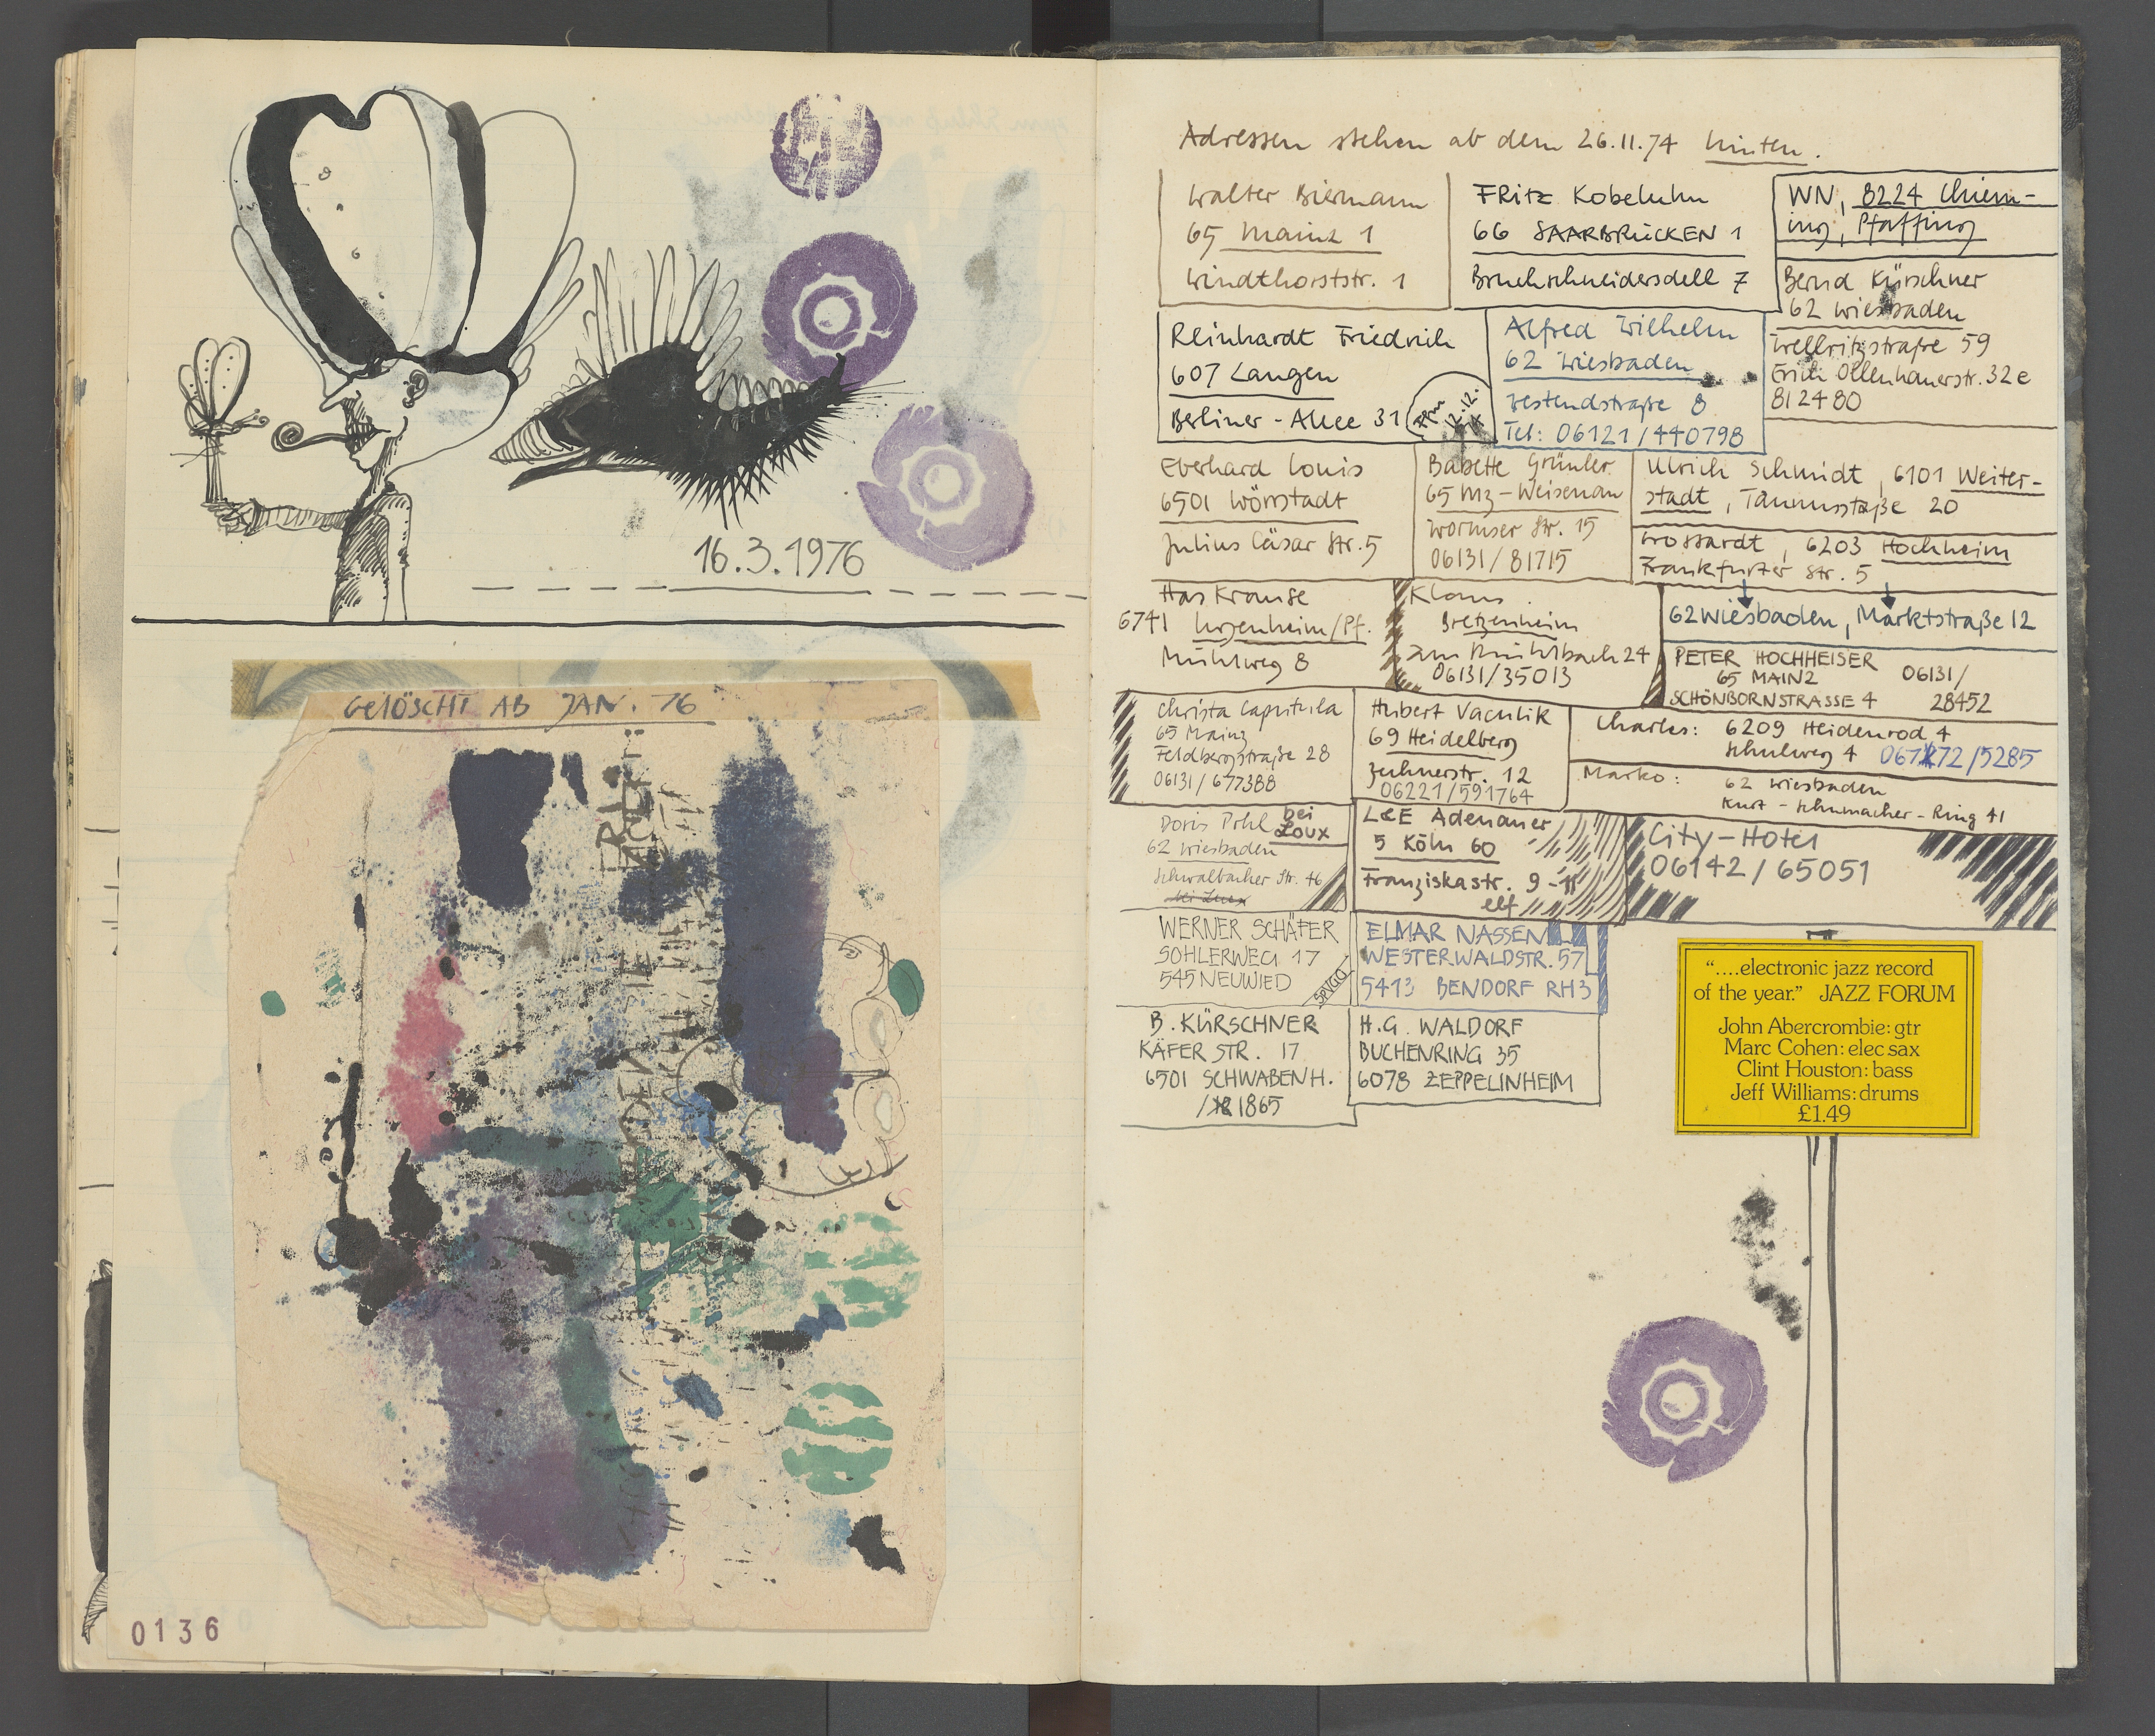 16.3.1976
GELÖSCHT AB JAN. 76
0136
Adressen stehen ab dem 26.11.74 hinten.
Walter Biermann
65 Mainz 1
Windthorststr. 1
FRitz Kobeluhn
66 SAARBRÜCKEN 1
Bruchschneidersdell 7
WN, 8224 Chiem-
ing, Pfaffing
Bernd Kürschner
62 Wiesbaden
Wellritzstraße 59
Erich Ollenhauerstr. 32e
812480
Reinhardt Friedrich
607 Langen
Berliner - Allee 31
12.12.
Alfred Wilhelm
62 Wiesbaden
Westendstraße 8
Tel: 06121/440798
Eberhard Louis
6501 Wörrstadt
Julius Cäsar Str. 5
Babette Grünler
65 Mz - Weisenau
Wormser Str. 15
06131/81715
Ulrich Schmidt, 6101 Weiter-
stadt, Taunusstraße 20
Trossardt, 6203 Hochheim
Frankfurter Str. 5
62 Wiesbaden, Marktstraße 12
Has Krause
6741 /Pf.
Mühlweg 8
Klaus
Bretzenheim
Zum Mühlbach 24
06131/35013
PETER HOCHHEISER
65 MAINZ
SCHÖNBORNSTRASSE 4
06131/
28452
Christa Caputula
65 Mainz
Feldbergstraße 28
06131/677388
Hubert Vaculik
69 Heidelberg
Zeehnerstr. 12
06221/591764
Charles: 6209 Heidenrod 4
Schulweg 4 06772/5285
Marko: 62 Wiesbaden
Kurt - Schumacher - Ring 41
Doris Pohl bei
Loux
62 Wiesbaden
Schwalbacher Str. 46
L&E Adenauer
5 Köln 60
Franziskastr. 9 - 11
elf
City-Hotel
06142/65051
WERNER SCHÄFER
SOHLERWEG 17
545 NEUWIED
ELMAR NASSEN
WESTERWALDSTR. 57
5413 BENDORF RH3
B. KÜRSCHNER
KÄFER STR. 17
6501 SCHWABENH.
/1865
H.G. WALDORF
BUCHENRING 35
6078 ZEPPELINHEIM
"....electronic jazz record
of the year." JAZZ FORUM
John Abercrombie: gtr
Marc Cohen: elec sax
Clint Houston: bass
Jeff Williams: drums
£1.49